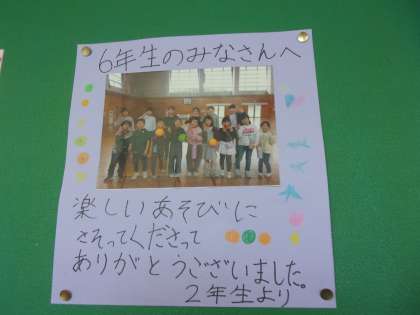 6年生のみなさんへ
楽しいあそびに
さそってくださって
ありがとうございました。
2年生より